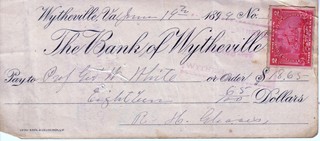 Wytheville, Va, June 19th 1899 No.
The Bank of Wytheville
Pay to Geo W White or Order $18.65
Eighteen 65/100 Dollars